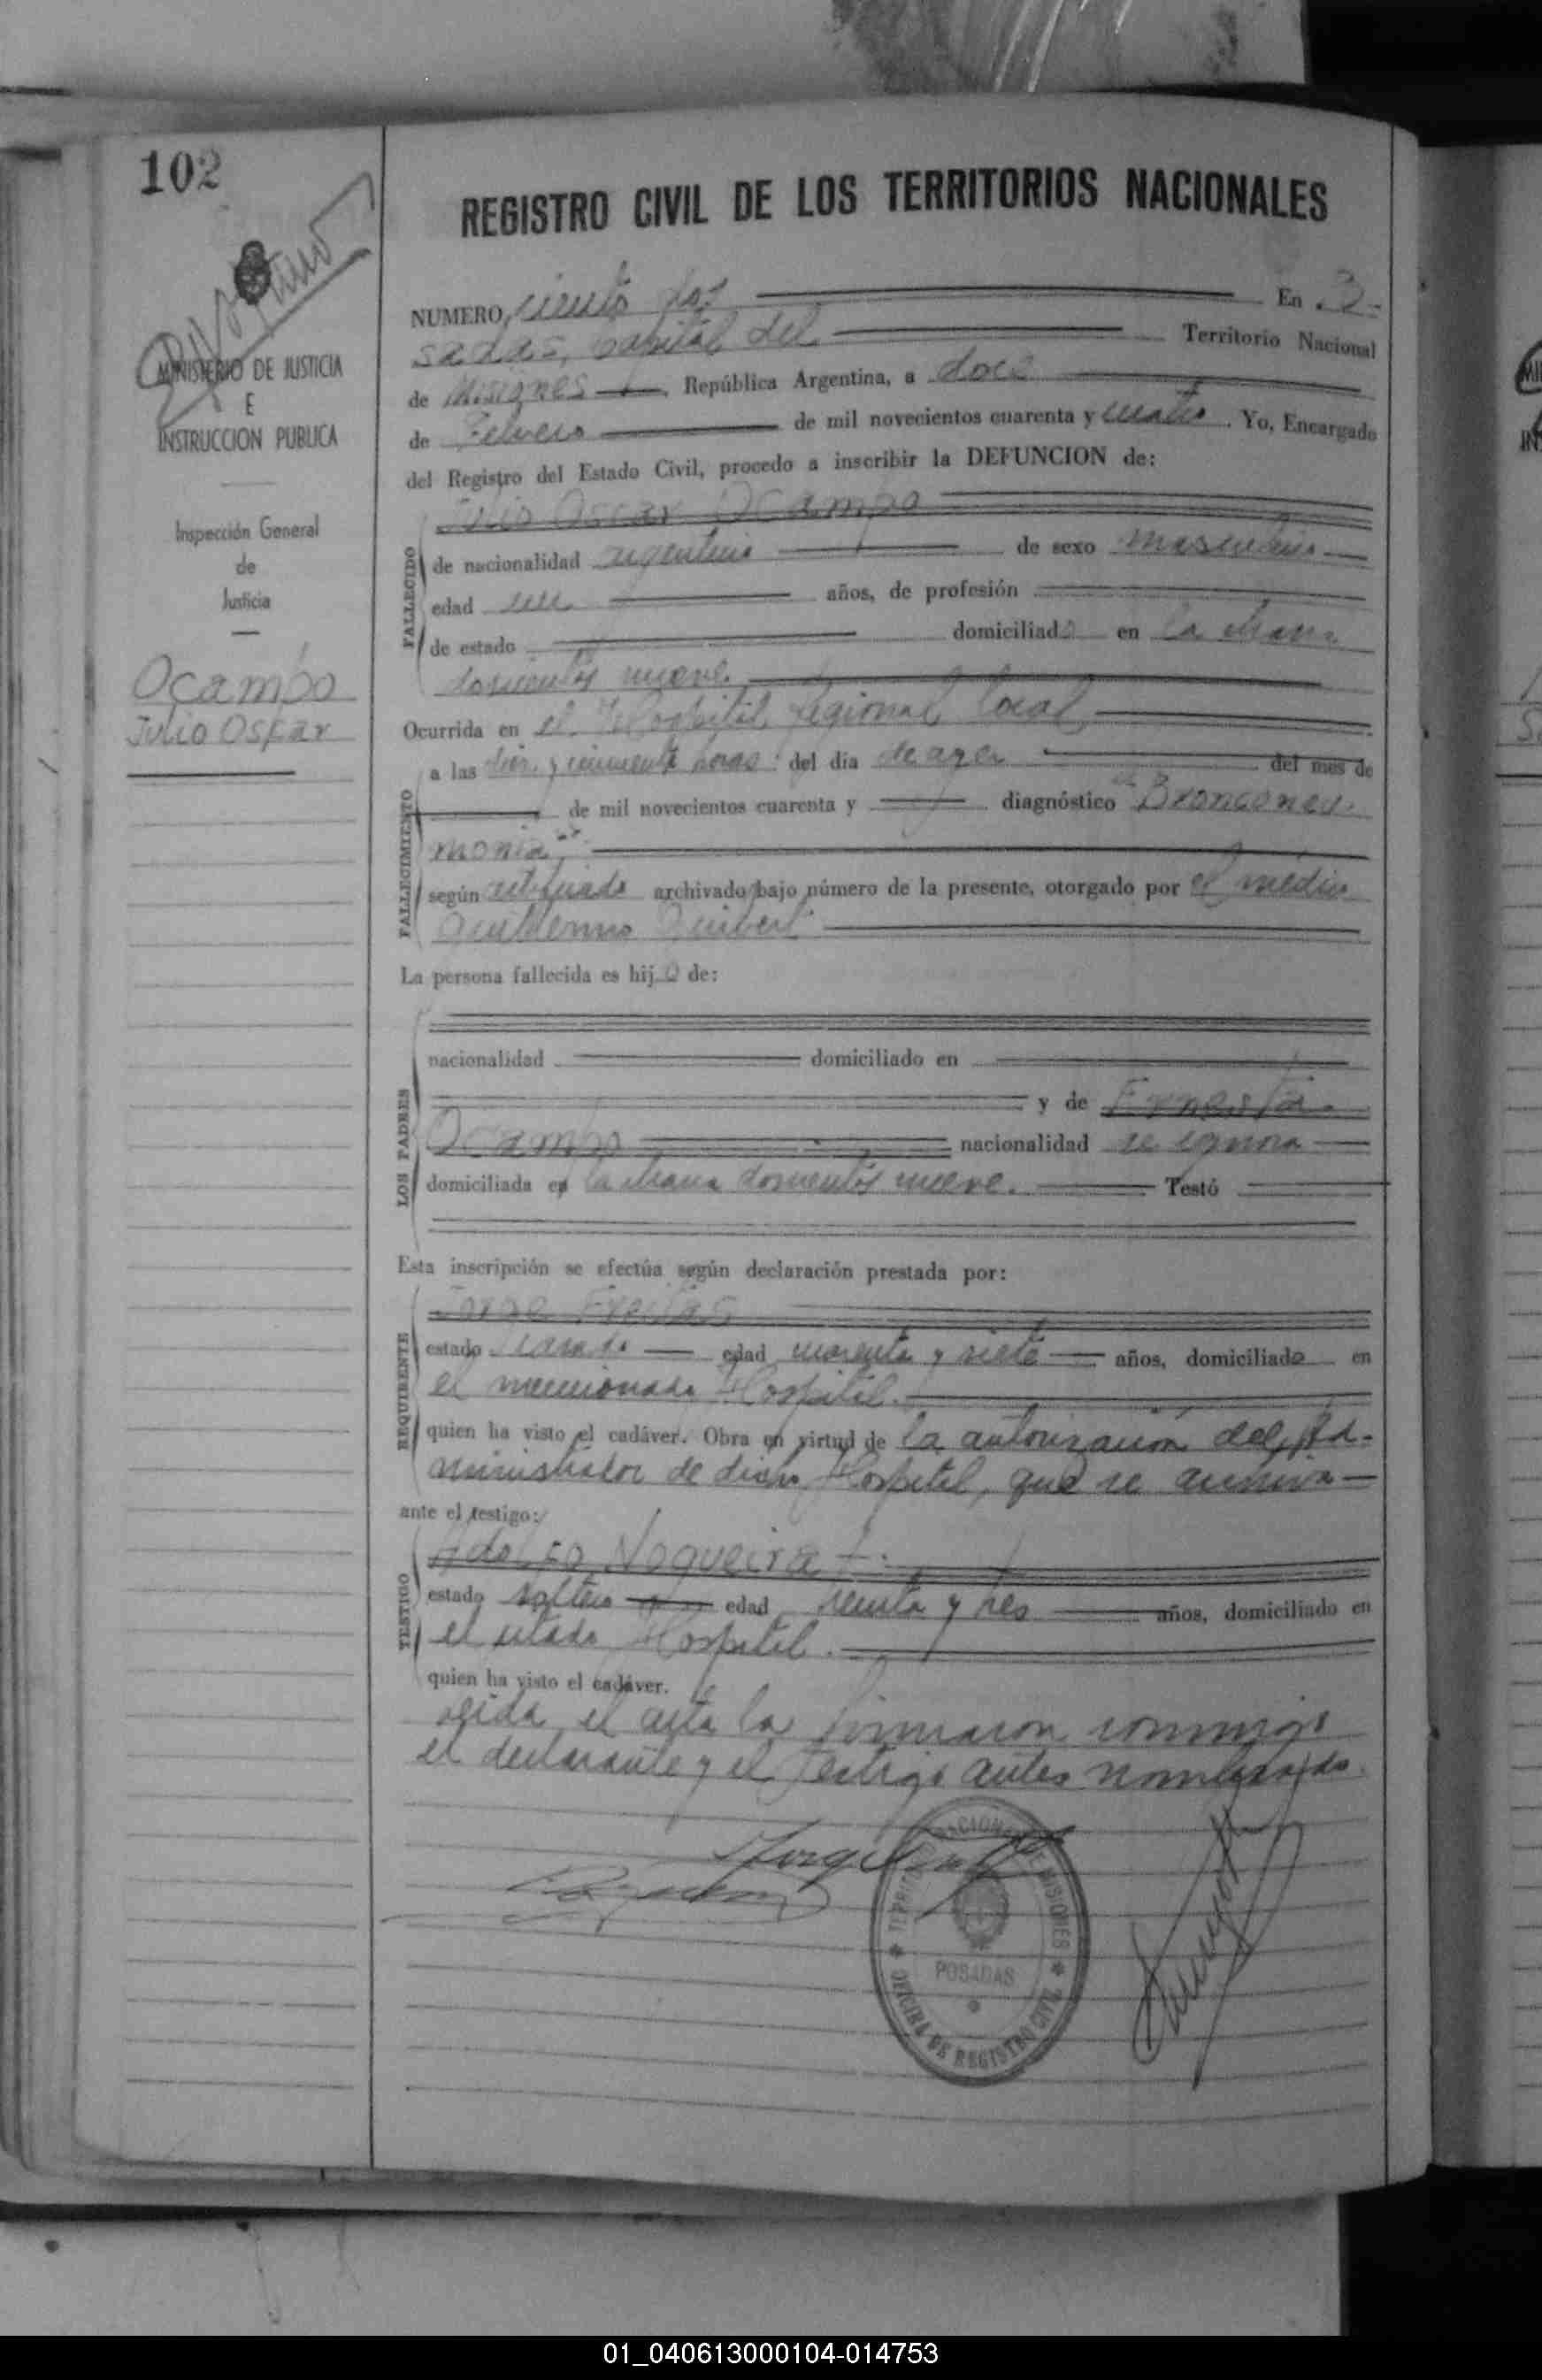 102
REGISTRO CIVIL DE LOS TERRITORIOS NACIONALES
MINISTERIO DE JUSTICIA
E
INSTRUCCION PUBLICA
Inspección General
de
Justicia
Ocampo
Julio Oscar
NUMERO ciento dos En
sadas, capital del Territorio Nacional
de Misiones, República Argentina, a doce
de Febrero de mil novecientos cuarenta y cuatro. Yo, Encargado
del Registro del Estado Civil, procedo a inscribir la DEFUNCION de:
Julio Oscar Ocampo
FALLECIDO
de nacionalidad argentina de sexo masculino
edad un años, de profesión
de estado domiciliado en la chacra
doscientos nueve.
Ocurrida en el Hospital Regional local
FALLECIMIENTO
a las diez y cincuenta horas del día de ayer del mes de
de mil novecientos cuarenta y diagnóstico "Bronconeu-
monia"
según certificado archivado bajo número de la presente, otorgado por el médico
Guillermo
La persona fallecida es hijo de:
LOS PADRES
nacionalidad domiciliado en
y de Ernesta
Ocampo nacionalidad se ignora
domiciliada en la chacra doscientos nueve. Testó
Esta inscripción se efectúa según declaración prestada por:
REQUIRENTE
Jorge Freitas
estado casado edad cuarenta y siete años, domiciliado en
el mencionado Hospital.
quien ha visto el cadáver. Obra en virtud de la autorización del Ad-
ministrador de dicho Hospital, que se archiva
ante el testigo:
TESTIGO
Adolfo Nogueira
estado soltero edad treinta y tres años, domiciliado en
el citado Hospital.
quien ha visto el cadáver.
Leida el acta la firmaron conmigo
el declarante y el testigo antes nombrado.
TERRITORIO NACIONAL DE MISIONES
POSADAS
OFICINA DE REGISTRO CIVIL
01_040613000104-014753